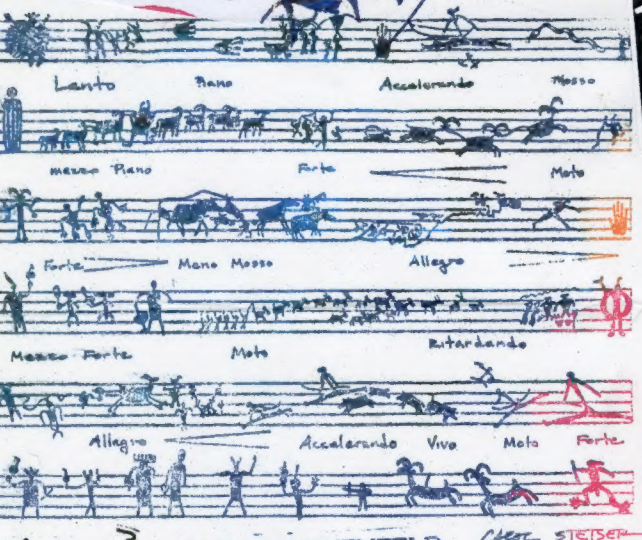 Lento Piano Accelerando Mosso
mezzo Piano Forte Moto
Forte Meno Mosso Allegro
Mezzo Forte Moto Ritardando
Allegro Accelerando Vivo Moto Forte
CAROL STETSER